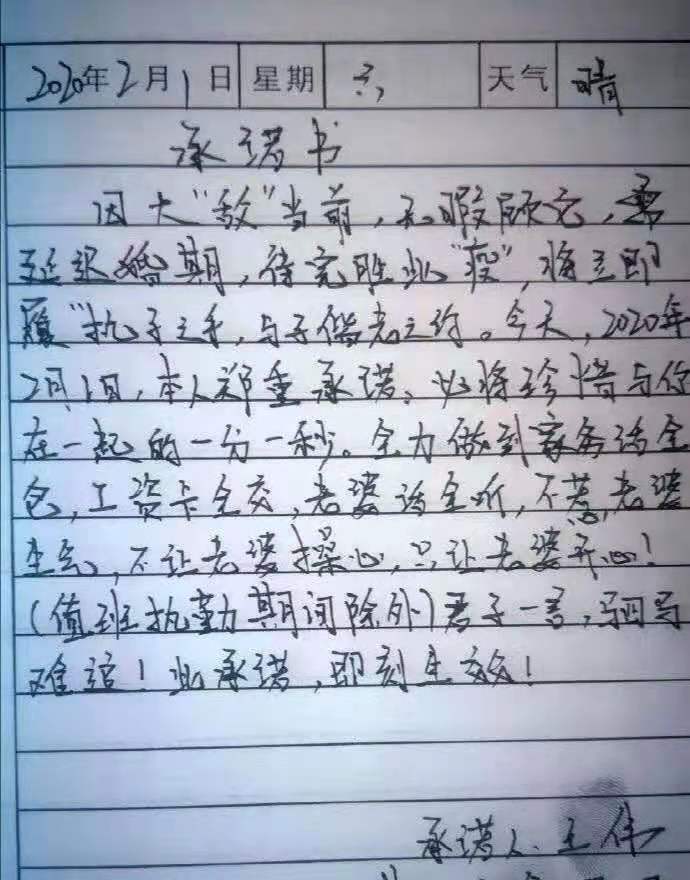 2020年2月1日 星期 六 天气 晴
承诺书
因大“敌”当前，无暇顾它，需
延迟婚期，待完胜此“疫”，将立即
履“执子之手，与子偕老之约。今天，2020年
2月1日，本人郑重承诺：必将珍惜与你
在一起的一分一秒。全力做到家务活全
包，工资卡全交，老婆话全听，不惹老婆
生气，不让老婆操心，只让老婆开心！
（值班执勤期间除外）君子一言，驷马
难追！此承诺，即刻生效！
承诺人：王伟